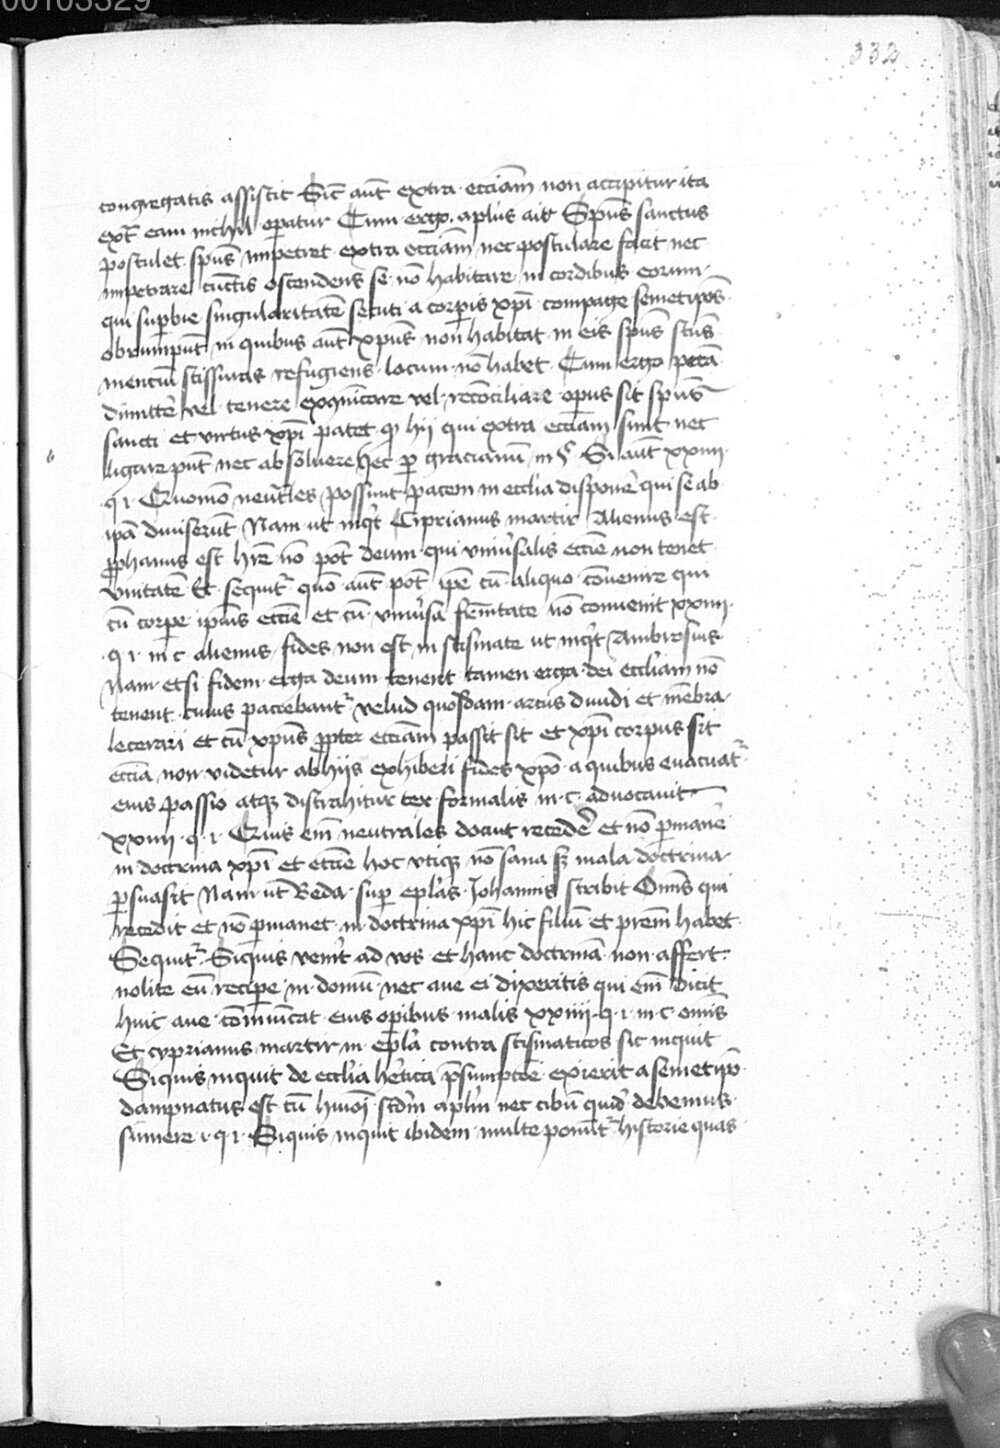 00103329
332
congregatis assistit Sic̄ aūt extra eccīam non accipitur ita
ext̄ eam nichil oꝑatur Cum ergo aplūs ait Spūs sanctus
postulet spūs impetret extra eccīam nec postulare facit nec
impetrare cunctis ostendens se nō habitare in cordibus eorum
qui suꝑbie singularitatē secuti a corꝑis xp̄i compage semetipōs
obrumpūt in quibus aūt xp̄us non habitat in eis spūs scūs
mentiū scissuras refugiens locum nō habet Cum ergo pccā
dimittē vel tenere exc̄nicare vel recōciliare opus sit spūs
sancti et virtus xp̄i patet qđ hij qui extra eccīam sunt nec
ligare pn̄t nec absoluere hec ꝑ gracianū in §. Si aūt xxiiij
q i Quomō neut̄les possunt pacem in ecclīa disponē qui se ab
ipā diuiserūt Nam ut inqͥt Ciprianus martir Alienus est
ꝓphanus est hr̄e nō pōt deum qui vniūsalis eccīe non tenet
vnitatē Et sequit̄ quō aūt pōt ipē cū aliquo conuenire qui
cū corꝑe ipīus eccīe et cū vniūsa frn̄itate nō conuenit xxiiij
q i in c alienus fides non est in scismate ut inqͥt Ambrosius
Nam etsi fidem erga deum tenent tamen erga dei ecclīam nō
tenent cuius paciebant̄ velud quosdam artus diuidi et mēbra
lacerari et cū xp̄us ꝓpter eccīam passū sit et xp̄i corpus sit
eccīa non videtur ab hijs exhiberi fides xp̄o a quibus euacuat̄
eius passio atqꝫ distrahitur tex formalis in c aduocauit
xxiiij q i Quis em̄ neutrales docuit recedē et nō ꝑmanē
in doctrina xp̄i et eccīe hoc vtiqꝫ nō sana sꝫ mala doctrina
ꝑsuasit Nam ut Beda suꝑ eplās Johannis scribit Om̄is qui
recedit et nō ꝑmanet in doctrina xp̄i hic filiū et prēm habet
Sequit̄ Siquis venīt ad vos et hanc doctrinā non affert
nolite eū reciꝑe in domū nec aue ei dixeritis qui em̄ dicit
huic aue cōmūicat eius oꝑibus malis xxiiij q i in c om̄is
Et cyprianus martir in eplā contra scismaticos sic inquit
Siquis inquit de ecclīa hēticā p̄sumptōe exierit a semetipō
dampnatus est cū hmōi scdm̄ aplm̄ nec cibū quidē debemus
sumere i q i Siquis inquit ibidem multe ponūt̄ historie quas